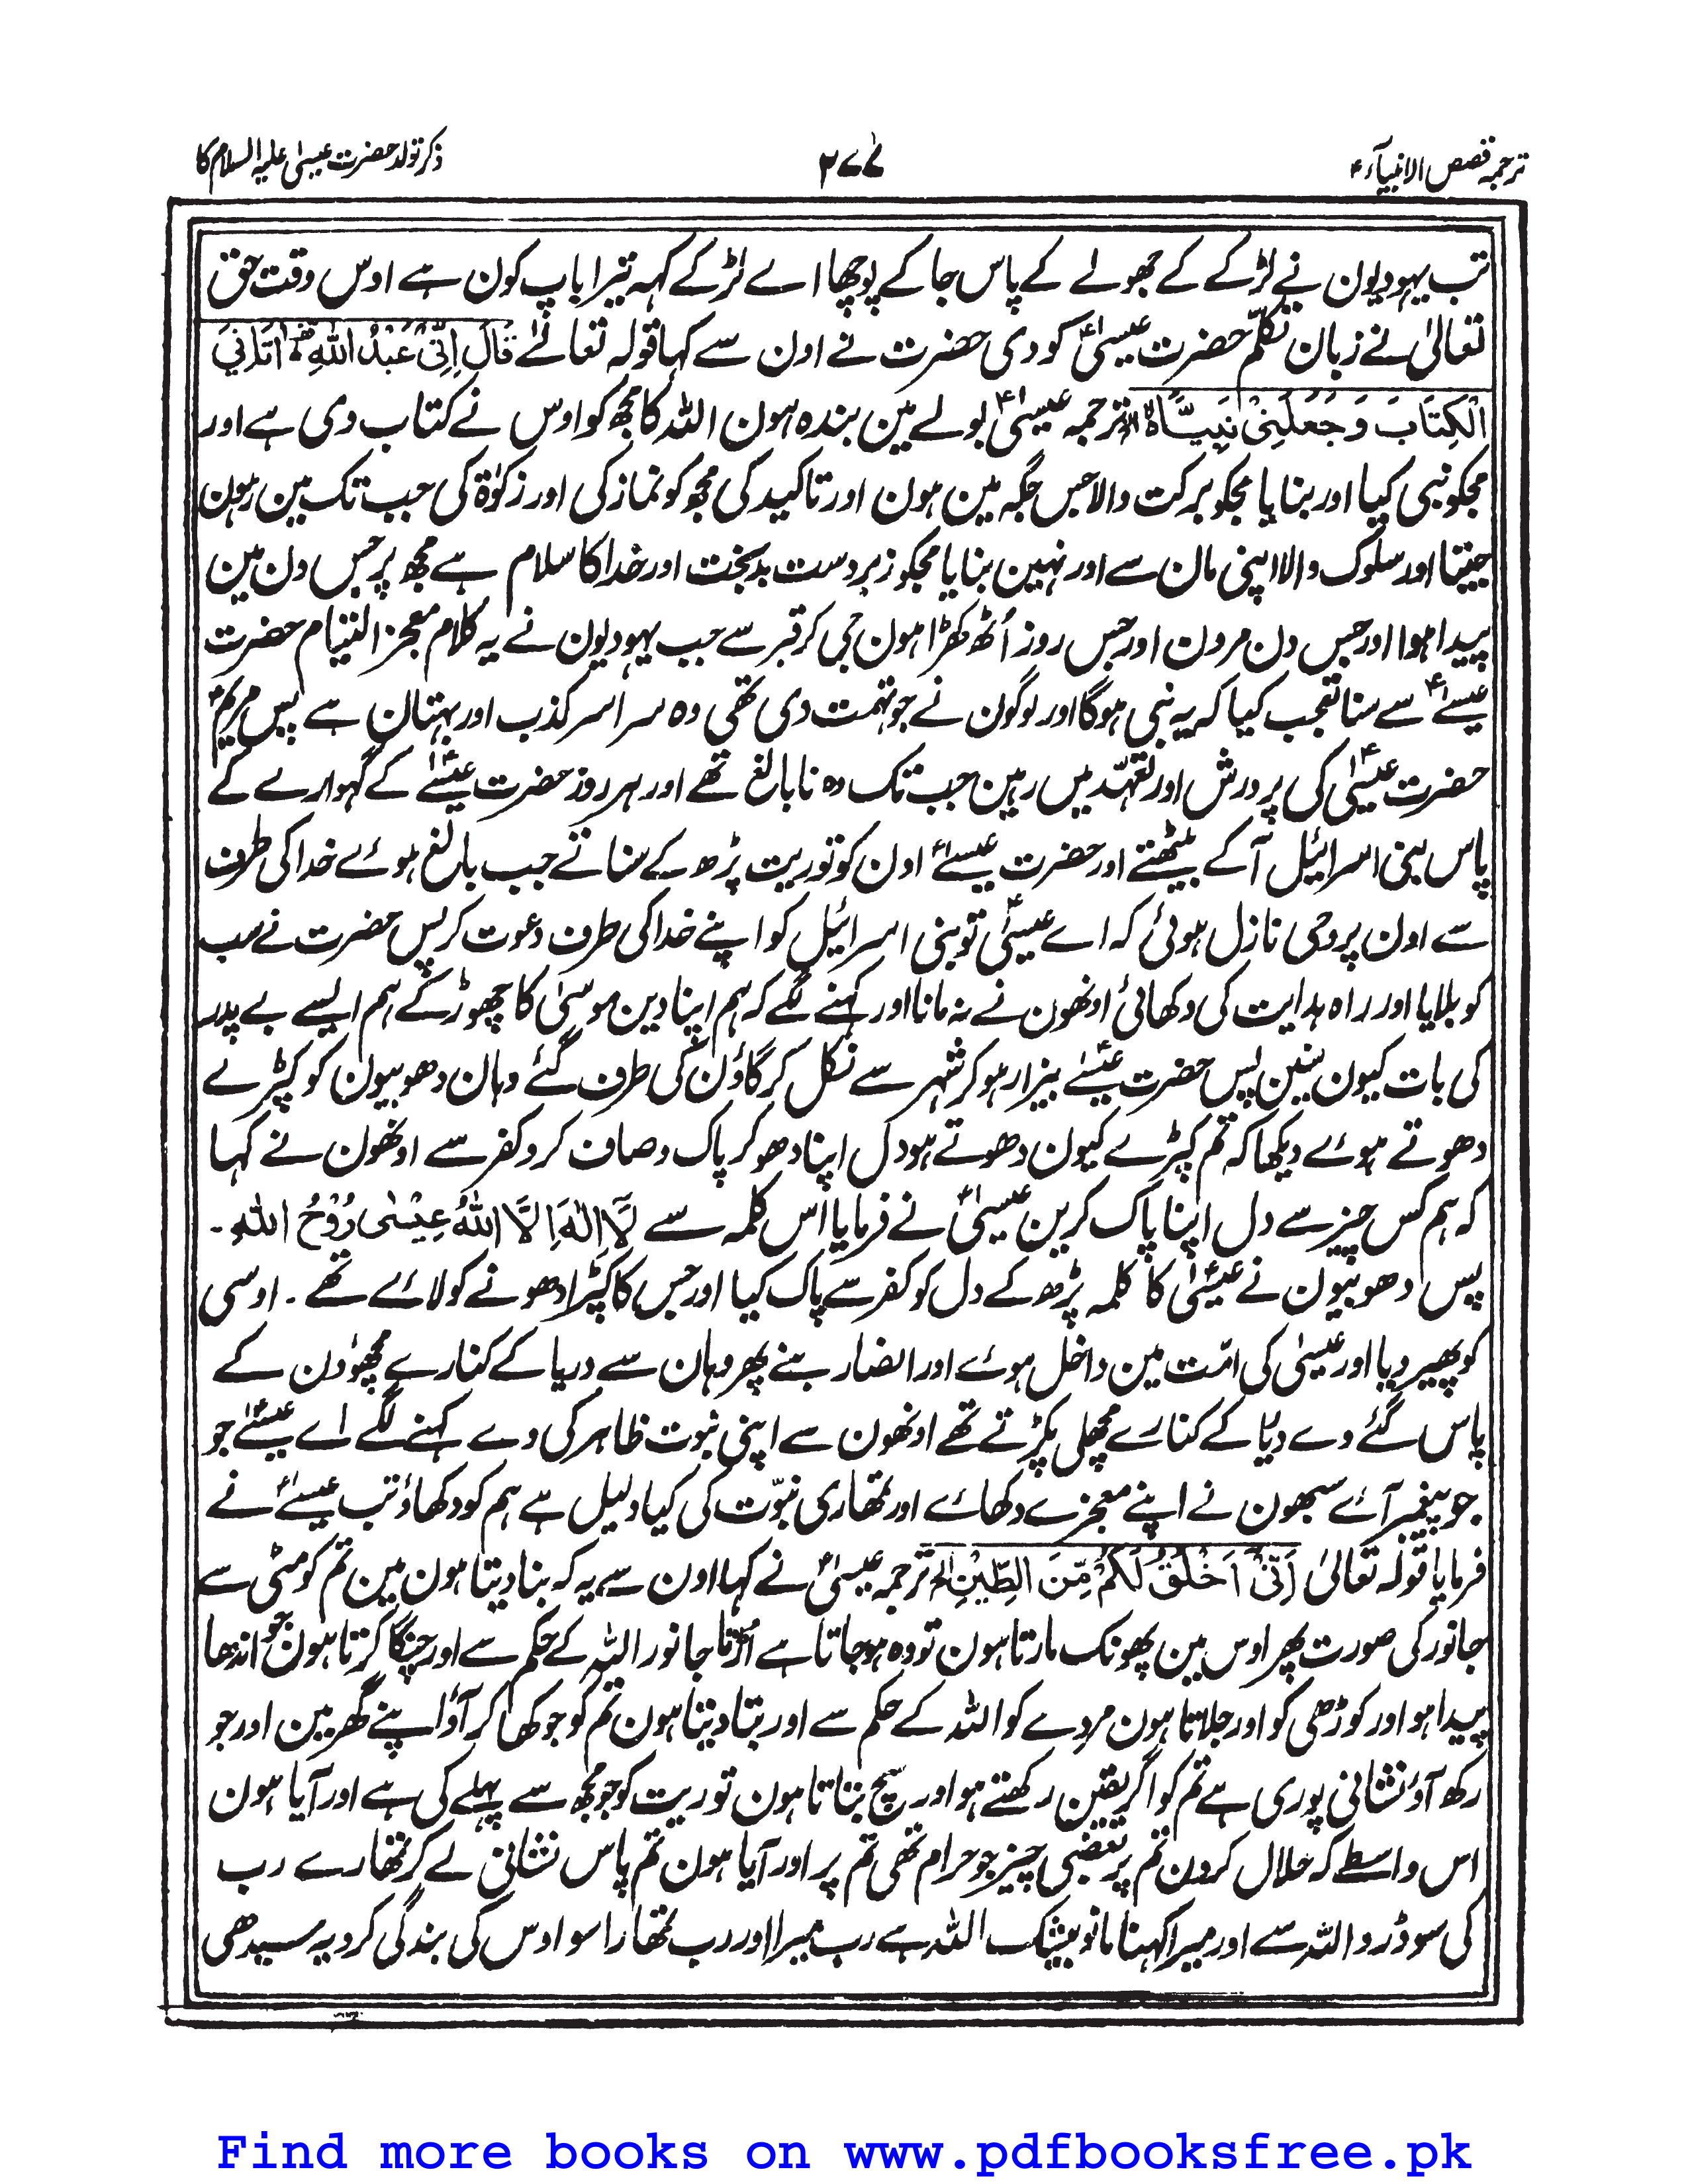 ترجمہ قصص الانبیآء
۲۷۷
ذکر تولد حضرت عیسیٰ علیہ السلام کا
تب یہودیون نے لڑکے کے جھولے کے پاس جا کے پوچھا اے لڑکے کہہ تیرا باپ کون ہے اوس وقت حق
تعالیٰ نے زبان تکلّم حضرت عیسیٰؑ کو دی حضرت نے اون سے کہا قولہ تعالےٰ قَالَ اِنِّیْ عَبْدُ اللّٰہِ اٰتٰنِیَ
الْکِتَابَ وَ جَعَلَنِیْ نَبِیًّا ترجمہ عیسیٰؑ بولے مین بندہ ہون اللہ کا مجھ کو اوس نے کتاب دی ہے اور
مجکو نبی کیا اور بنایا مجکو برکت والا جس جگہ مین ہون اور تاکید کی مجھ کو نماز کی اور زکوٰۃ کی جب تک مین رہون
جیتا اور سلوک والا اپنی مان سے اور نہین بنایا مجکو زبردست بدبخت اور خدا کا سلام ہے مجھ پر جس دن مین
پیدا ہوا اور جس دن مرون اور جس روز اُٹھ کھڑا ہون جی کر قبر سے جب یہودیون نے یہ کلام معجز التیام حضرت
عیسےٰؑ سے سنا تعجب کیا کہ یہ نبی ہوگا اور لوگون نے جو تہمت دی تھی وہ سراسر کذب اور بہتان ہے پس مریمؑ
حضرت عیسیٰؑ کی پرورش اور تعہّد میں رہین جب تک وہ نابالغ تھے اور ہر روز حضرت عیسےٰؑ کے گہوارے کے
پاس بنی اسرائیل آ کے بیٹھتے اور حضرت عیسےٰؑ اون کو توریت پڑھ کے سناتے جب بالغ ہوئے خدا کی طرف
سے اون پر وحی نازل ہوئی کہ اے عیسیٰؑ تو بنی اسرائیل کو اپنے خدا کی طرف دعوت کر پس حضرت نے سب
کو بلایا اور راہ ہدایت کی دکھائی اونھون نے نہ مانا اور کہنے لگے کہ ہم اپنا دین موسیٰ کا چھوڑ کے ہم ایسے بے پدر
کی بات کیون سنین پس حضرت عیسےٰؑ بیزار ہو کر شہر سے نکل کر گاؤن کی طرف گئے وہان دھوبیون کو کپڑے
دھوتے ہوئے دیکھا کہ تم کپڑے کیون دھوتے ہو دل اپنا دھو کر پاک و صاف کرو کفر سے اونھون نے کہا
کہ ہم کس چیز سے دل اپنا پاک کرین عیسیٰؑ نے فرمایا اس کلمہ سے لَآ اِلٰہَ اِلَّا اللّٰہُ عِیْسٰی رُوْحُ اللّٰہِ ۔
پس دھوبیون نے عیسیٰؑ کا کلمہ پڑھ کے دل کو کفر سے پاک کیا اور جس کا کپڑا دھونے کو لائے تھے ۔ اوسی
کو پھیر دیا اور عیسیٰ کی امّت مین داخل ہوئے اور انصار بنے پھر وہان سے دریا کے کنارے مچھوؤن کے
پاس گئے وے دریا کے کنارے مچھلی پکڑتے تھے اونھون سے اپنی نبوت ظاہر کی وے کہنے لگے اے عیسےٰؑ جو
جو پیغمبر آئے سبھون نے اپنے معجزے دکھائے اور تمھاری نبوّت کی کیا دلیل ہے ہم کو دکھاؤ تب عیسےٰؑ نے
فرمایا قولہ تعالیٰ اَنِّیْ اَخْلُقُ لَکُمْ مِّنَ الطِّیْنِ الخ ترجمہ عیسیٰؑ نے کہا اون سے یہ کہ بنا دیتا ہون مین تم کو مٹی سے
جانور کی صورت پھر اوس مین پھونک مارتا ہون تو وہ ہو جاتا ہے اُڑتا جانور اللہ کے حکم سے اور چنگا کرتا ہون جو اندھا
پیدا ہو اور کوڑھی کو اور جلاتا ہون مردے کو اللہ کے حکم سے اور بتا دیتا ہون تم کو جو کھا کر آؤ اپنے گھر مین اور جو
رکھ آؤ نشانی پوری ہے تم کو اگر یقین رکھتے ہو اور سچ بتاتا ہون توریت کو جو مجھ سے پہلے کی ہے اور آیا ہون
اس واسطے کہ حلال کرون تم پر بعضی چیز جو حرام تھی تم پر اور آیا ہون تم پاس نشانی لے کر تمھارے رب
کی سو ڈرو اللہ سے اور میرا کہنا مانو بیشک اللہ ہے رب میرا اور رب تمھارا سو اوس کی بندگی کرو یہ سیدھی
Find more books on www.pdfbooksfree.pk